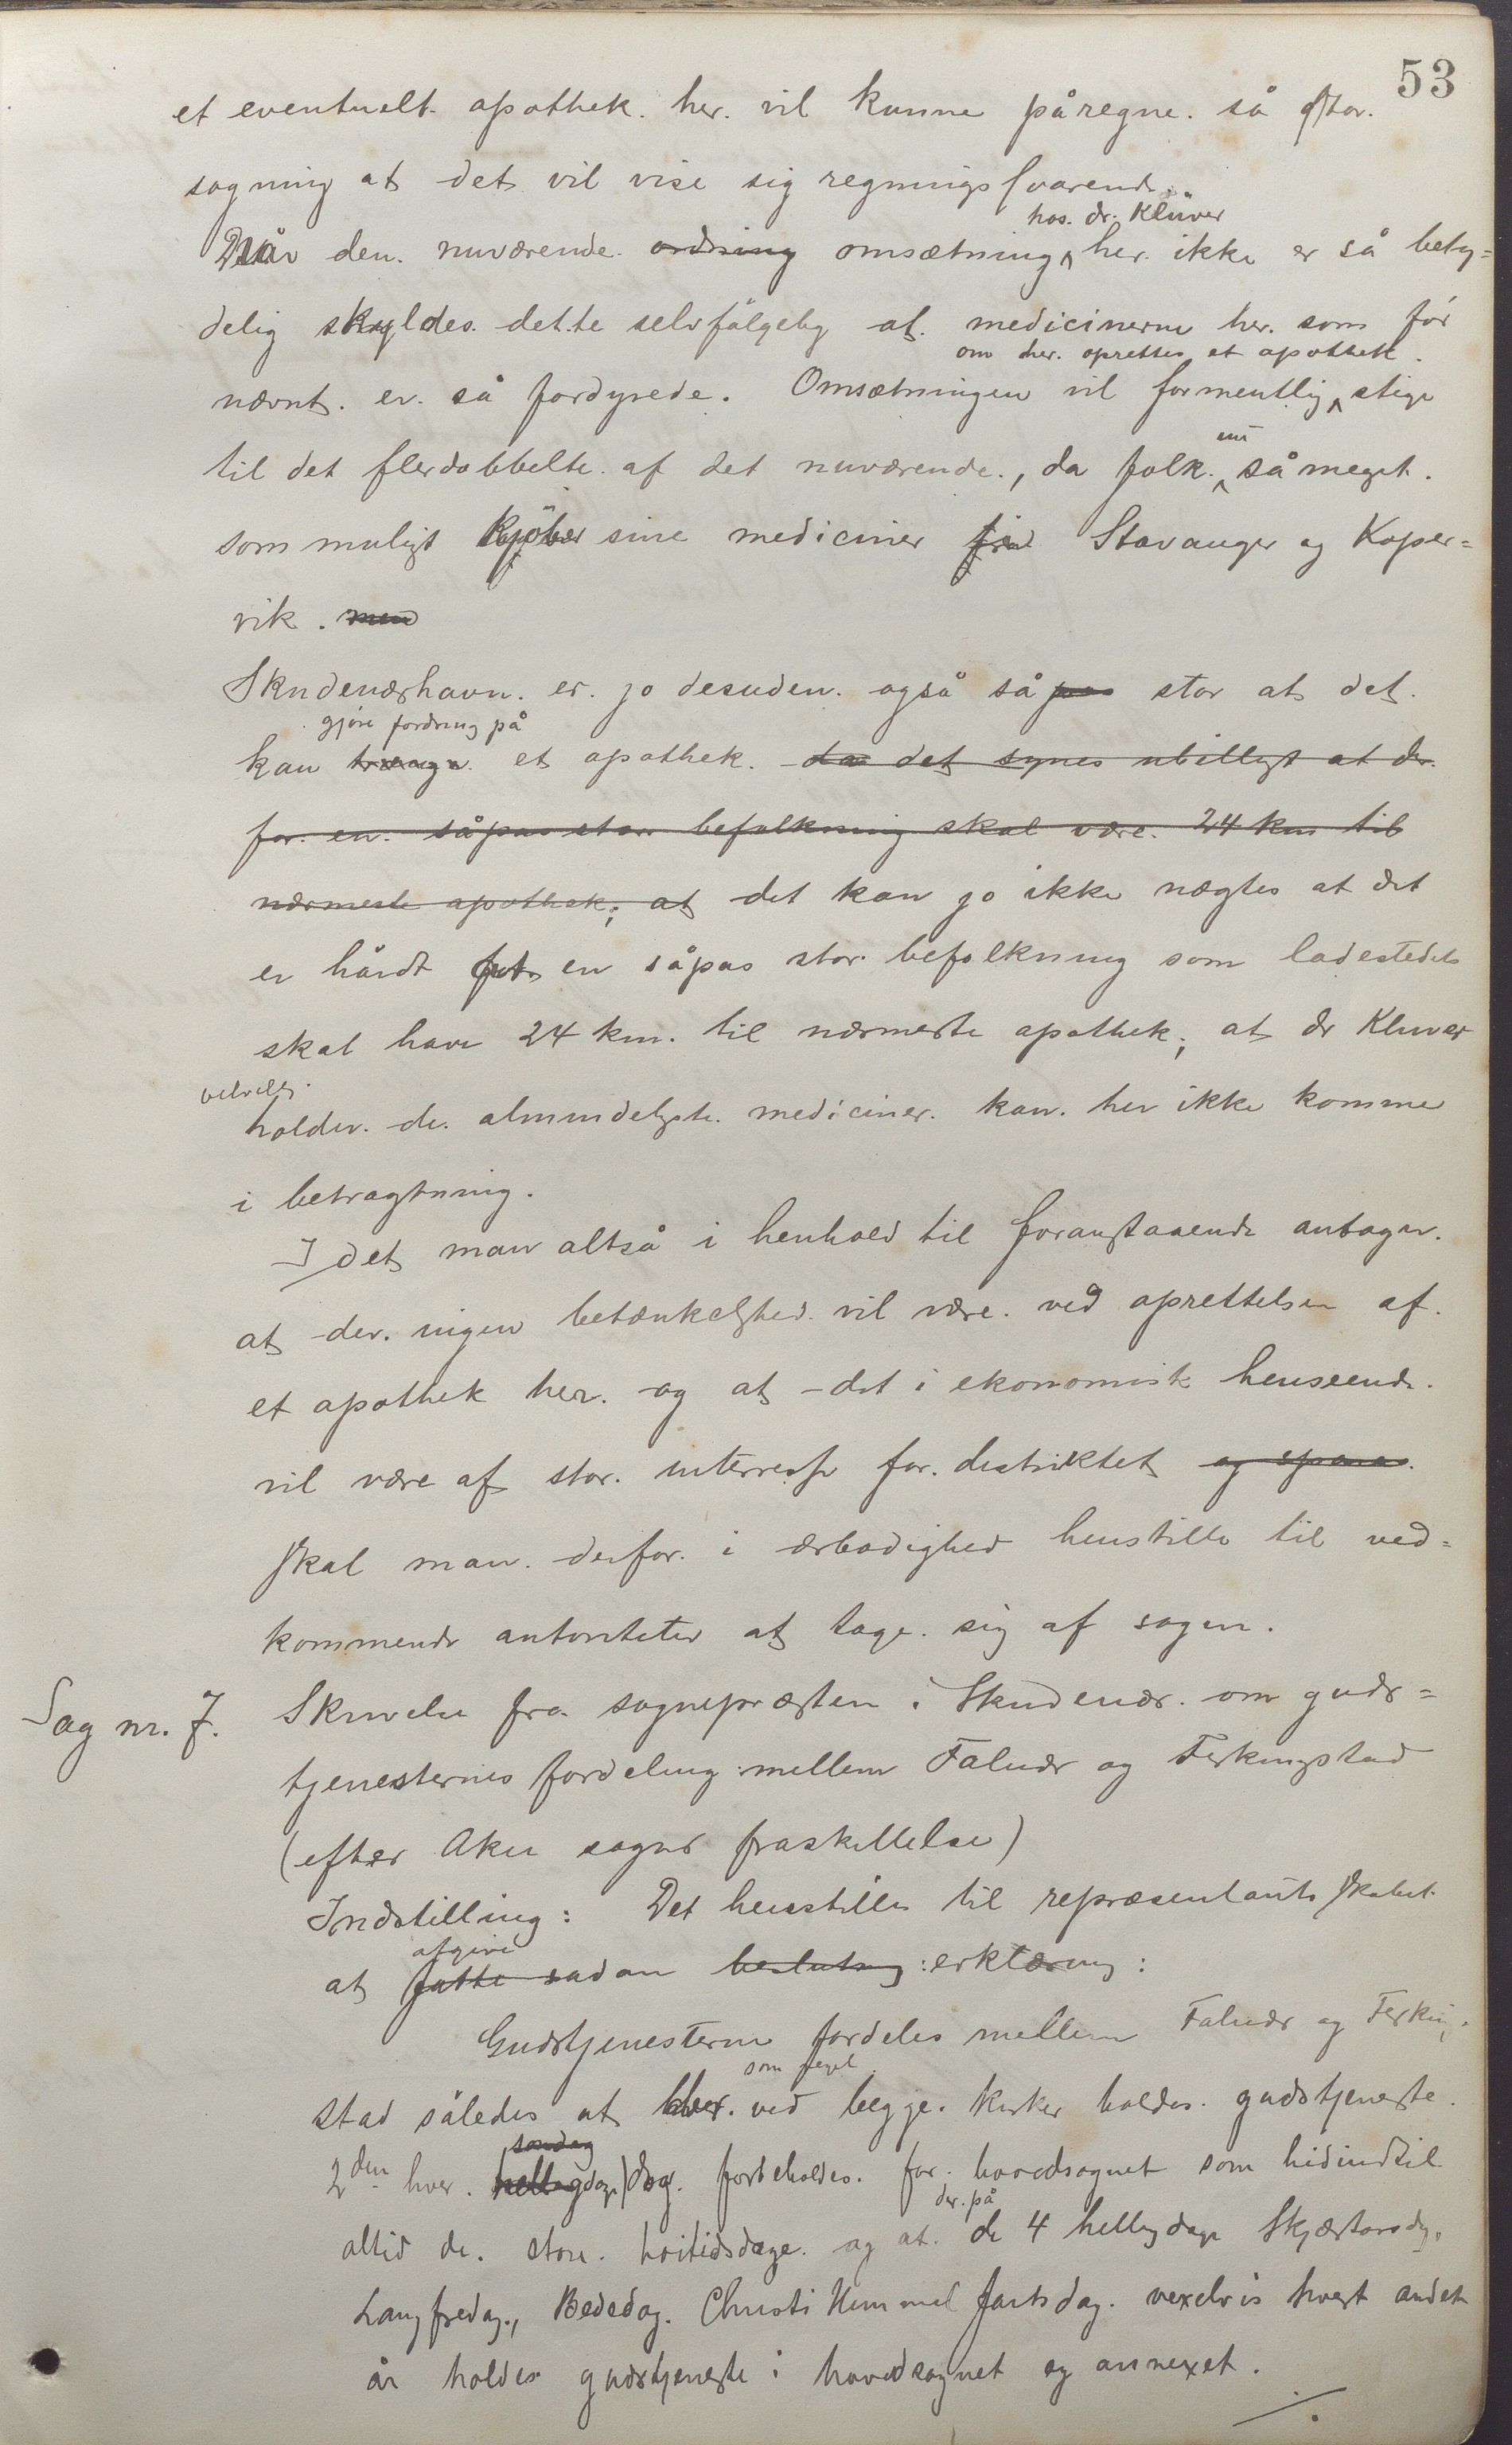 53
et eventuelt. apothek. her. vil kunne påregne. så stor.
søgning at det vil vise sig regningssvarende.
hos. dr. Klüver
Når den. nuværende. ordning omsætning her. ikke er så bety=
delig skyldes. dette selvfölgelig at. medicinerne her. som för
om her. oprettes et apothek.
nævnt. er. så fordyrede. Omsætningen vil formentlig stige
til det flerdobbelte. af det nuværende., da folk. nu så meget.
som muligt kjöber sine mediciner fra Stavanger og Koper=
vik. men
Skudeneshavn. er. jo desuden. også så pas stor at det.
gjøre fordring på
kan trænge et apothek. da det synes ubilligt at der.
for. en. såpas stor. befolkning skal være. 24 km til
nærmeste apothek; at det kan jo ikke nægtes at det
er hårdt at en såpas stor. befolkning som ladestedets
skal have 24 km. til nærmeste apothek; at dr Kluver
velvilligt.
holder. de. almindeligste. mediciner. kan. her ikke komme
i betragtning.
I det man altså i henhold til foranstaaende antager.
at der. ingen betænkelighed. vil være. ved oprettelsen af.
et apothek her. og at det i ekonomisk henseende.
vil være af stor. interresse for. distriktet og
skal man. derfor. i ærbødighed henstille til ved=
kommende autoriteter at tage. sig af sagen.
Sag nr. 7. Skrivelse fra sognepræsten i Skudenes. om guds=
tjenesternes fordeling mellem Falnes og Ferkingstad
(efter Åkre sogns fraskillelse)
Indstilling: Det henstilles til repræsentantskabet.
afgive
at fatte sadan beslutning: erklæring:
Gudstjenesterne fordeles mellem Falnes og Ferking=
som regel
stad således at ved begge. kirker holdes. gudstjeneste.
søndag
2den hver. helligdag) dog. forbeholdes. for. hovedsognet som hidindtil
der. på
altid de. store. høitidsdage. og at. de 4 helligdage Skjærtorsdg.,
Langfredag., Bededag. Christi Himmelfartsdag. vexelvis hvert andet
år holdes gudstjeneste i hovedsognet og annexet.
./.